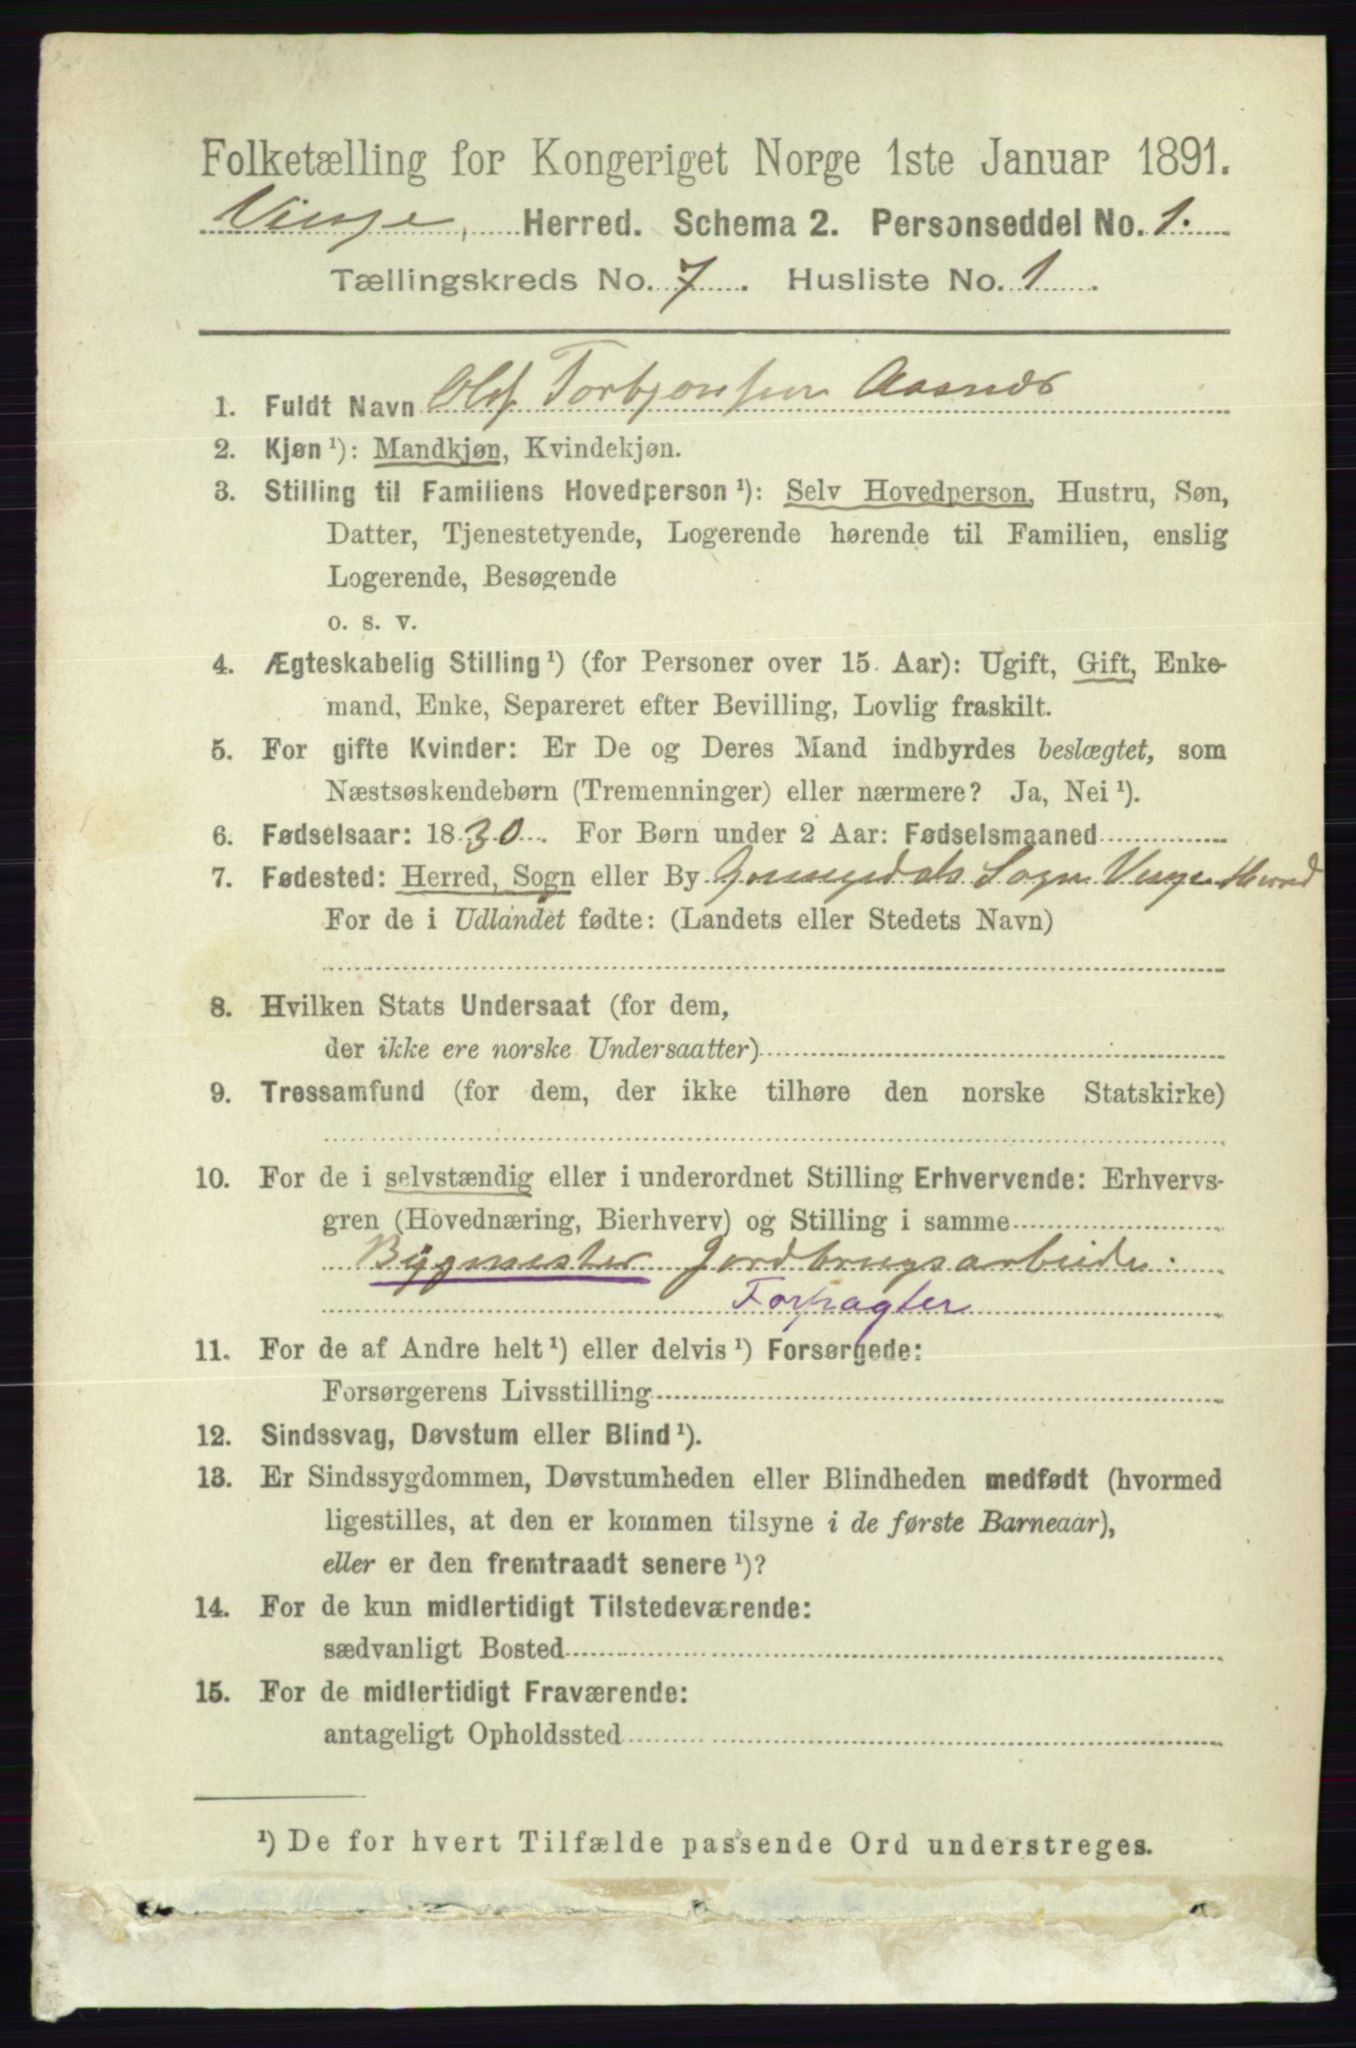 Folketælling for Kongeriget Norge 1ste Januar 1891.
Vinje, Herred. Schema 2. Personseddel No. 1.
Tællingskreds No. 7. Husliste No. 1.
1. Fuldt Navn Olof Torbjønsen Aasnæs
2. Kjøn¹): Mandkjøn, Kvindekjøn.
3. Stilling til Familiens Hovedperson¹): Selv Hovedperson, Hustru, Søn,
Datter, Tjenestetyende, Logerende hørende til Familien, enslig
Logerende, Besøgende
o. s. v.
4. Ægteskabelig Stilling¹) (for Personer over 15 Aar): Ugift, Gift, Enke-
mand, Enke, Separeret efter Bevilling, Lovlig fraskilt.
5. For gifte Kvinder: Er De og Deres Mand indbyrdes beslægtet, som
Næstsøskendebørn (Tremenninger) eller nærmere? Ja, Nei¹).
6. Fødselsaar: 1830. For Børn under 2 Aar: Fødselsmaaned
7. Fødested: Herred, Sogn eller By Sogn Vinje Herred
For de i Udlandet fødte: (Landets eller Stedets Navn)
8. Hvilken Stats Undersaat (for dem,
der ikke ere norske Undersaatter)
9. Trossamfund (for dem, der ikke tilhøre den norske Statskirke)
10. For de i selvstændig eller i underordnet Stilling Erhvervende: Erhvervs-
gren (Hovednæring, Bierhverv) og Stilling i samme
Bygmester Jordbrugsarbeider
Forpagter
11. For de af Andre helt¹) eller delvis¹) Forsørgede:
Forsørgerens Livsstilling
12. Sindssvag, Døvstum eller Blind¹).
13. Er Sindssygdommen, Døvstumheden eller Blindheden medfødt (hvormed
ligestilles, at den er kommen tilsyne i de første Barneaar),
eller er den fremtraadt senere¹)?
14. For de kun midlertidigt Tilstedeværende:
sædvanligt Bosted
15. For de midlertidigt Fraværende:
antageligt Opholdssted
¹) De for hvert Tilfælde passende Ord understreges.